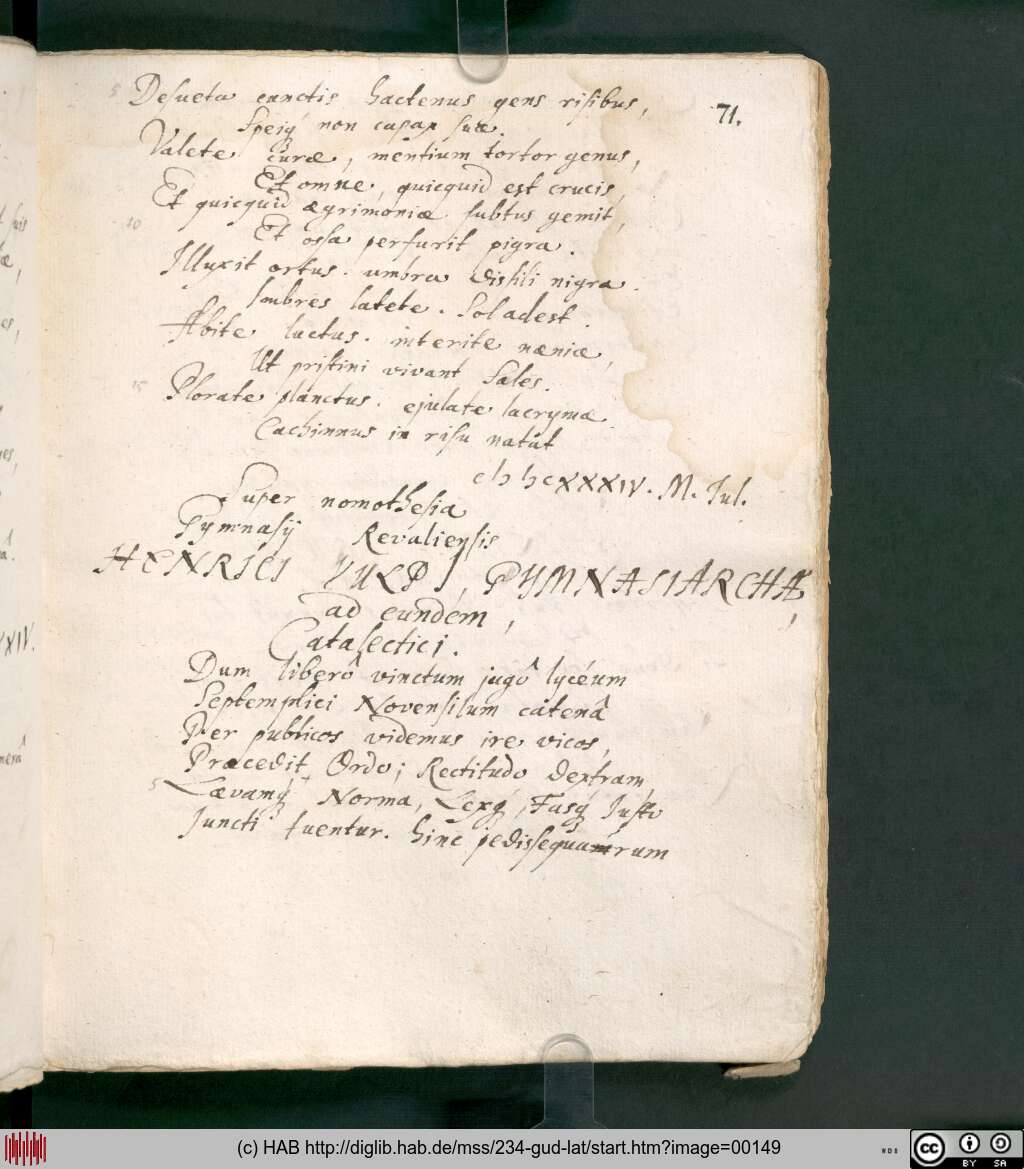 71.
5 Desueta cunctis hactenus gens risibus,
Speiq́ non capax suæ.
Valete curæ, mentium tortor genus,
Et omne, quicquid est crucis,
10 Et quicquid ægrimoniæ subtus gemit,
Et ossa perfurit pigra.
Illuxit ortus. umbra dissili nigra.
Imbres latete. Sol adest.
Abite luctus. interite næniæ,
Ut pristini vivant Sales.
15 Plorate planctus. ejulate lacrymæ.
Cachinnus in risu natat
XXXIV. M. Jul.
Super nomothesia
Gymnasij Revaliensis
HENRICI VULPI, GYMNASIARCHÆ,
ad eundem,
Catalectici.
Dum liberô vinctum jugô lycéum
Septemplici Novensilum catenâ
Per publicos videmus ire vicos,
Præcedit Ordo; Rectitudo dextram,
5 Lævamq́ Norma, Lexq́, Fasq́ Justo
Juncti tuentur. hinc pedissequarum
(c) HAB http://diglib.hab.de/mss/234-gud-lat/start.htm?image=00149
WDB
cc BY SA